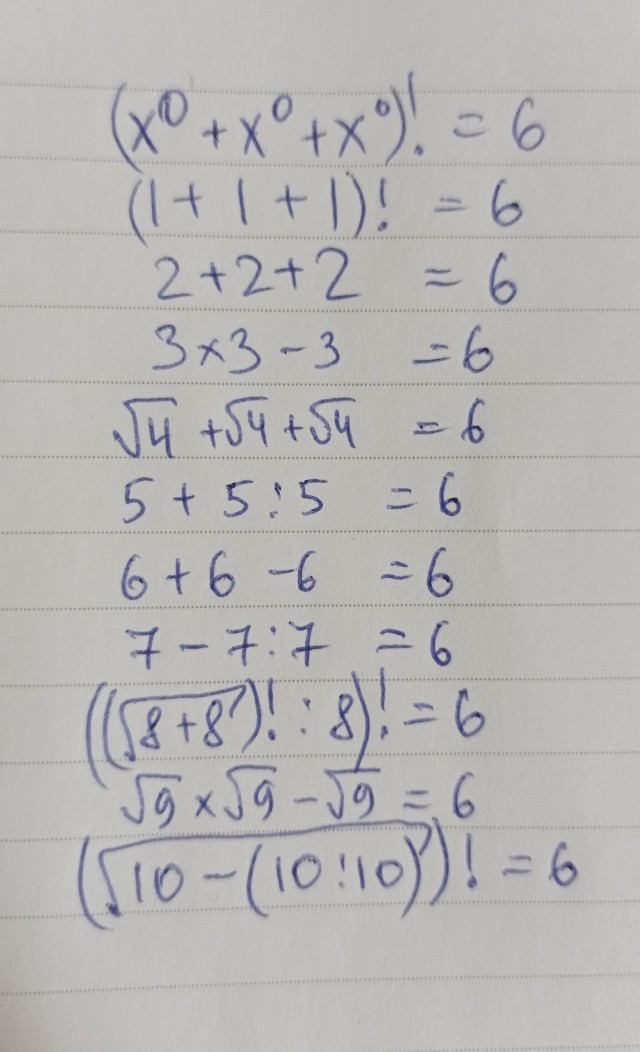 (x⁰ + x⁰ + x⁰)! = 6
(1 + 1 + 1)! = 6
2 + 2 + 2 = 6
3 × 3 - 3 = 6
√4 + √4 + √4 = 6
5 + 5 : 5 = 6
6 + 6 - 6 = 6
7 - 7 : 7 = 6
((√(8 + 8))! : 8)! = 6
√9 × √9 - √9 = 6
(√(10 - (10 : 10)))! = 6